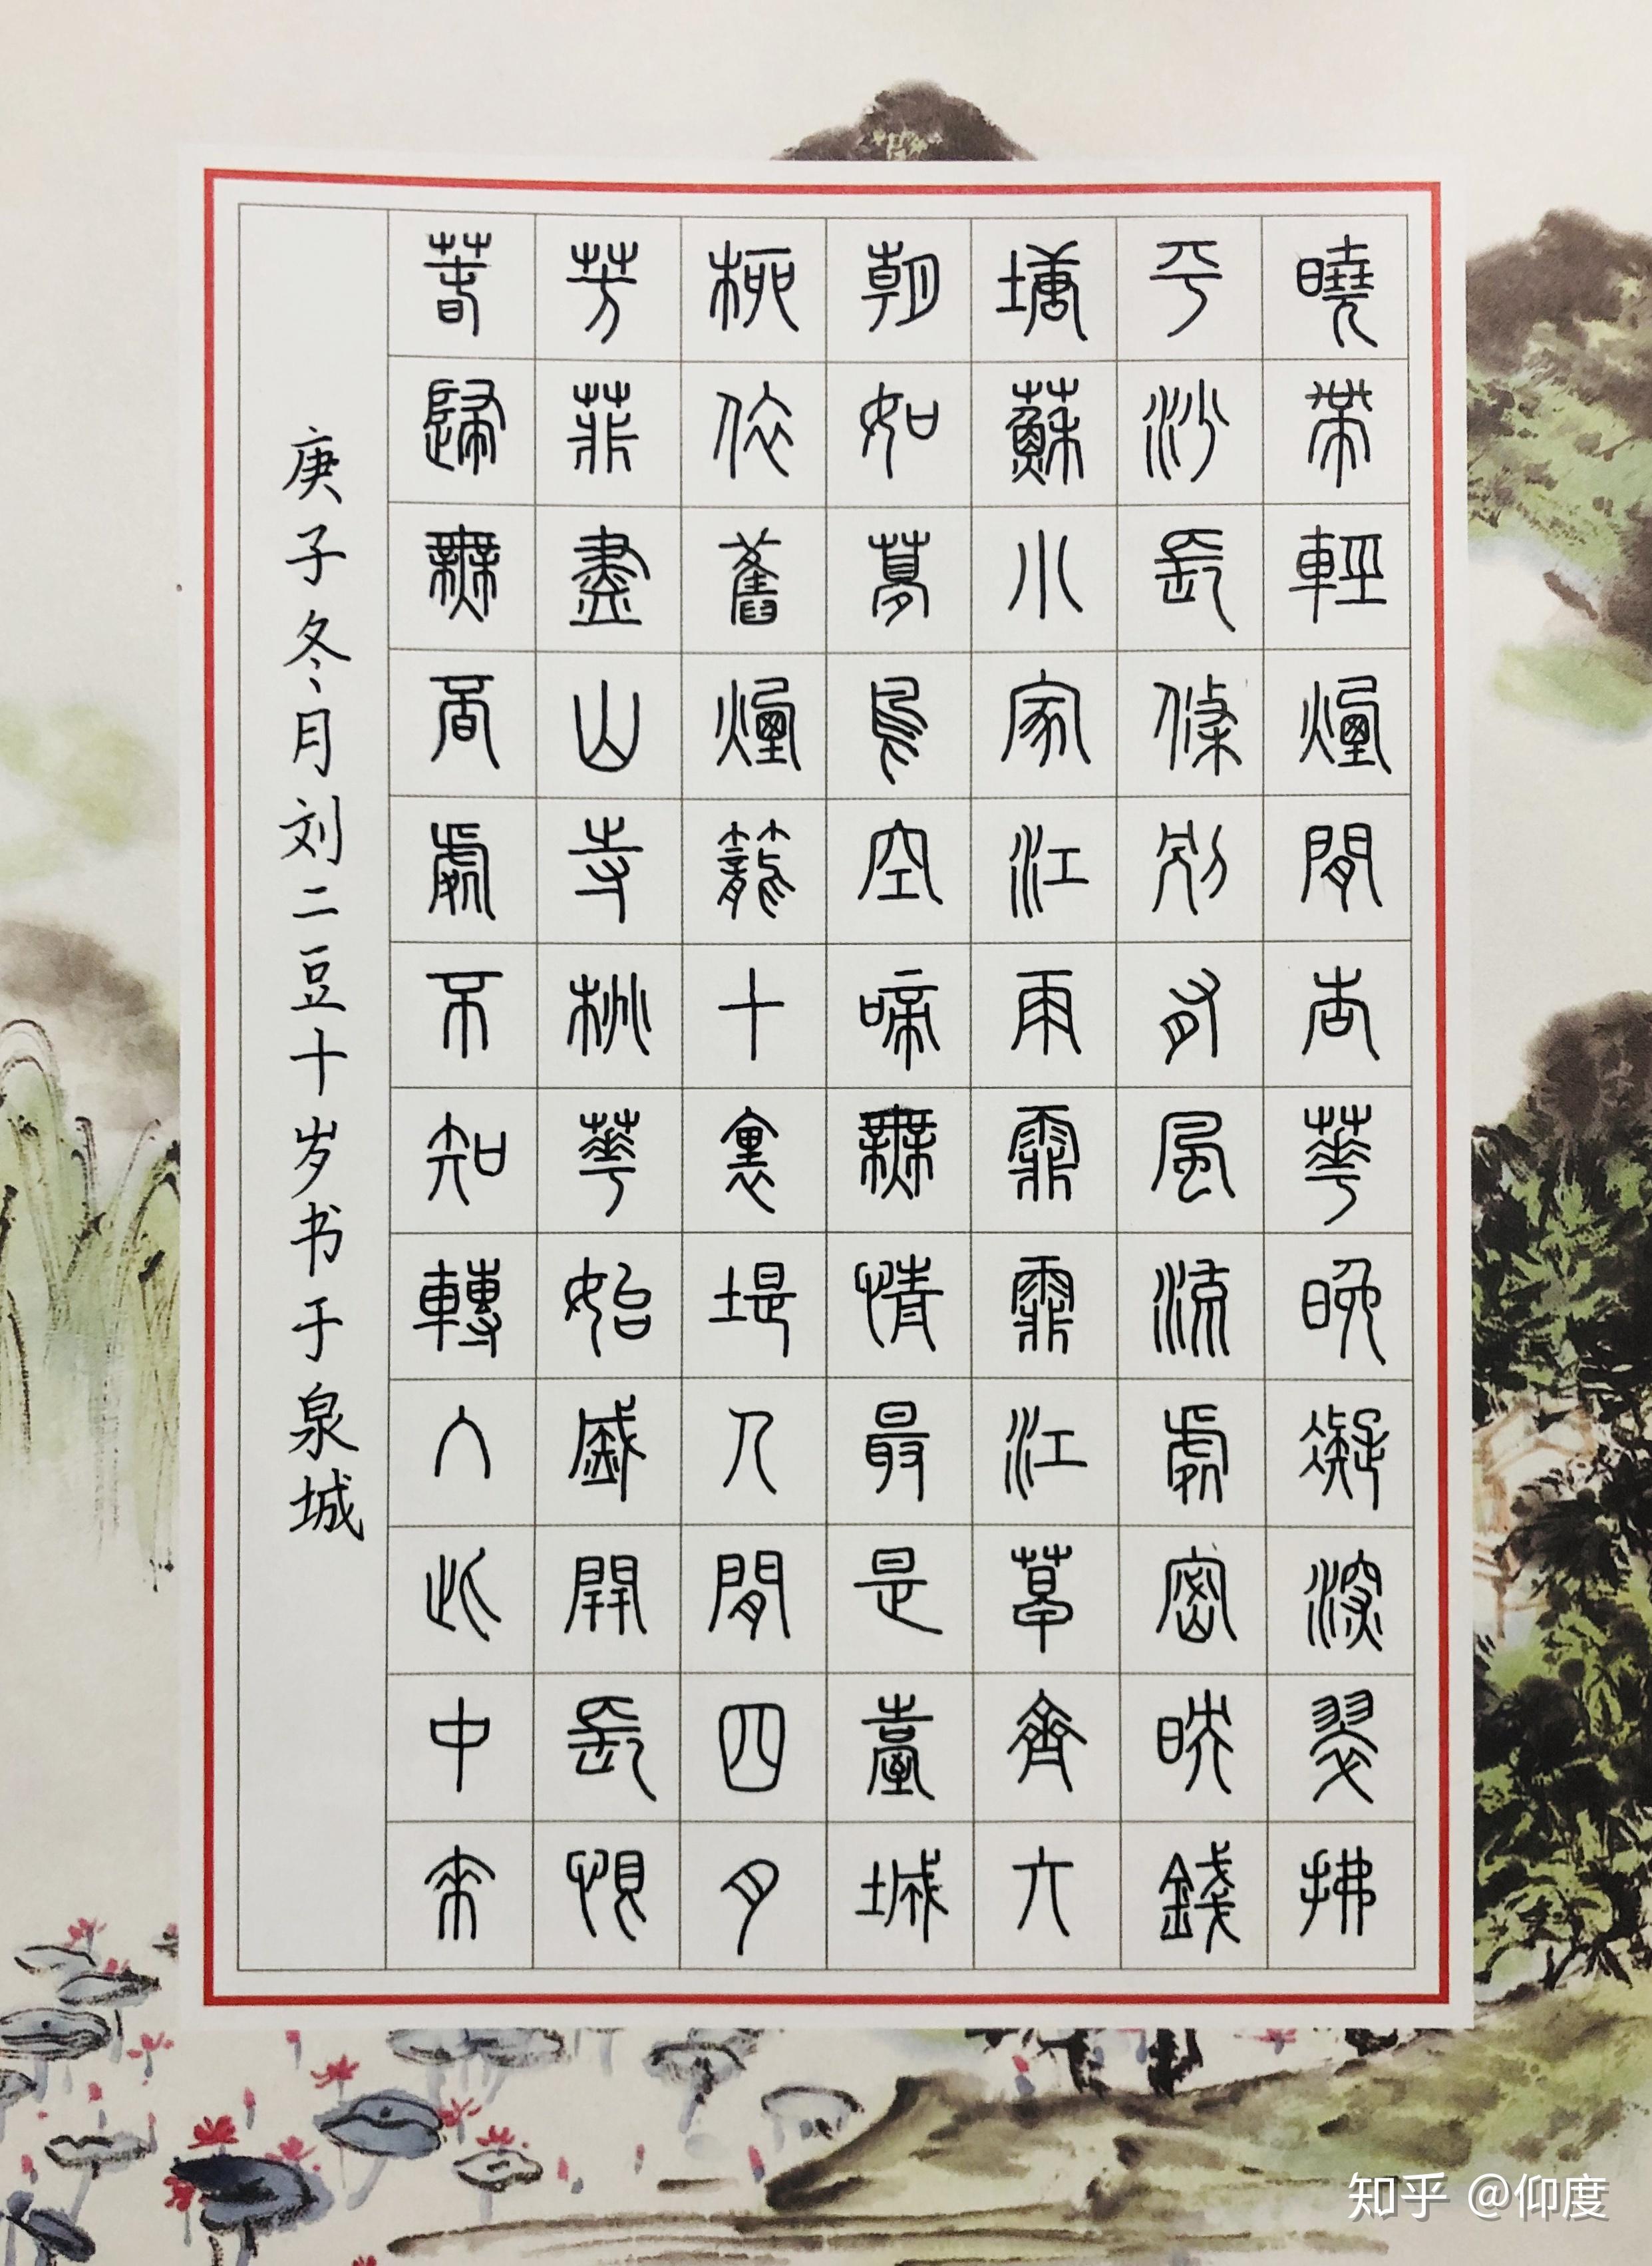 曉帶輕煙間杏華晚凝深翠拂
平沙長條別有風流處密映錢
塘蘇小家江雨霏霏江草齊六
朝如夢鳥空啼無情最是臺城
柳依舊煙籠十裏堤人間四月
芳菲盡山寺桃華始盛開長恨
春歸無覓處不知轉入此中來
庚子冬月刘二豆十岁书于泉城
知乎 @仰度